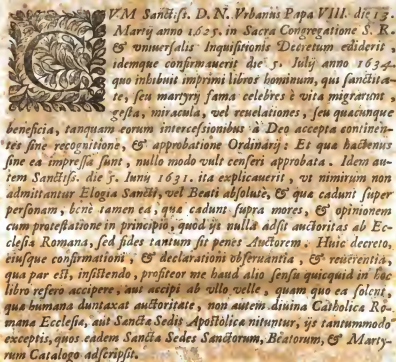 CVM Sanctiſs. D. N. Vrbanus Papa VIII. die 13.
Martij anno 1625. in Sacra Congregatione S. R.
& vniuerſalis Inquiſitionis Decretum ediderit,
idemque confirmauerit die 5. Iulij anno 1634
quo inhibuit imprimi libros hominum, qui ſanctita-
te, ſeu martyrij fama celebres è vita migrarunt,
geſta, miracula, vel reuelationes, ſeu quacunque
beneficia, tanquam eorum interceſsionibus à Deo accepta continen-
tes ſine recognitione, & approbatione Ordinarij: Et qua hactenus
ſine ea impreſſa ſunt, nullo modo vult cenſeri approbata. Idem au-
tem Sanctiſs. die 5. Iunij 1631. ita explicauerit, vt nimirum non
admittantur Elogia Sancti, vel Beati abſolutè, & qua cadunt ſuper
perſonam, benè tamen ea, qua cadunt ſupra mores, & opinionem
cum proteſtatione in principio, quod ijs nulla adſit auctoritas ab Ec-
cleſia Romana, ſed fides tantum ſit penes Auctorem. Huic decreto,
eiuſque confirmationi, & declarationi obſeruantia, & reuerentia,
qua par eſt, inſiſtendo, profiteor me haud alio ſenſu quicquid in hoc
libro refero accipere, aut accipi ab vllo velle, quam quo ea ſolent,
qua humana duntaxat auctoritate, non autem diuina Catholica Ro-
mana Eccleſia, aut Sancta Sedis Apoſtolica nituntur, ijs tantummodo
exceptis, quos eadem Sancta Sedes Sanctorum, Beatorum, & Marty-
rum Catalogo adſcripſit.